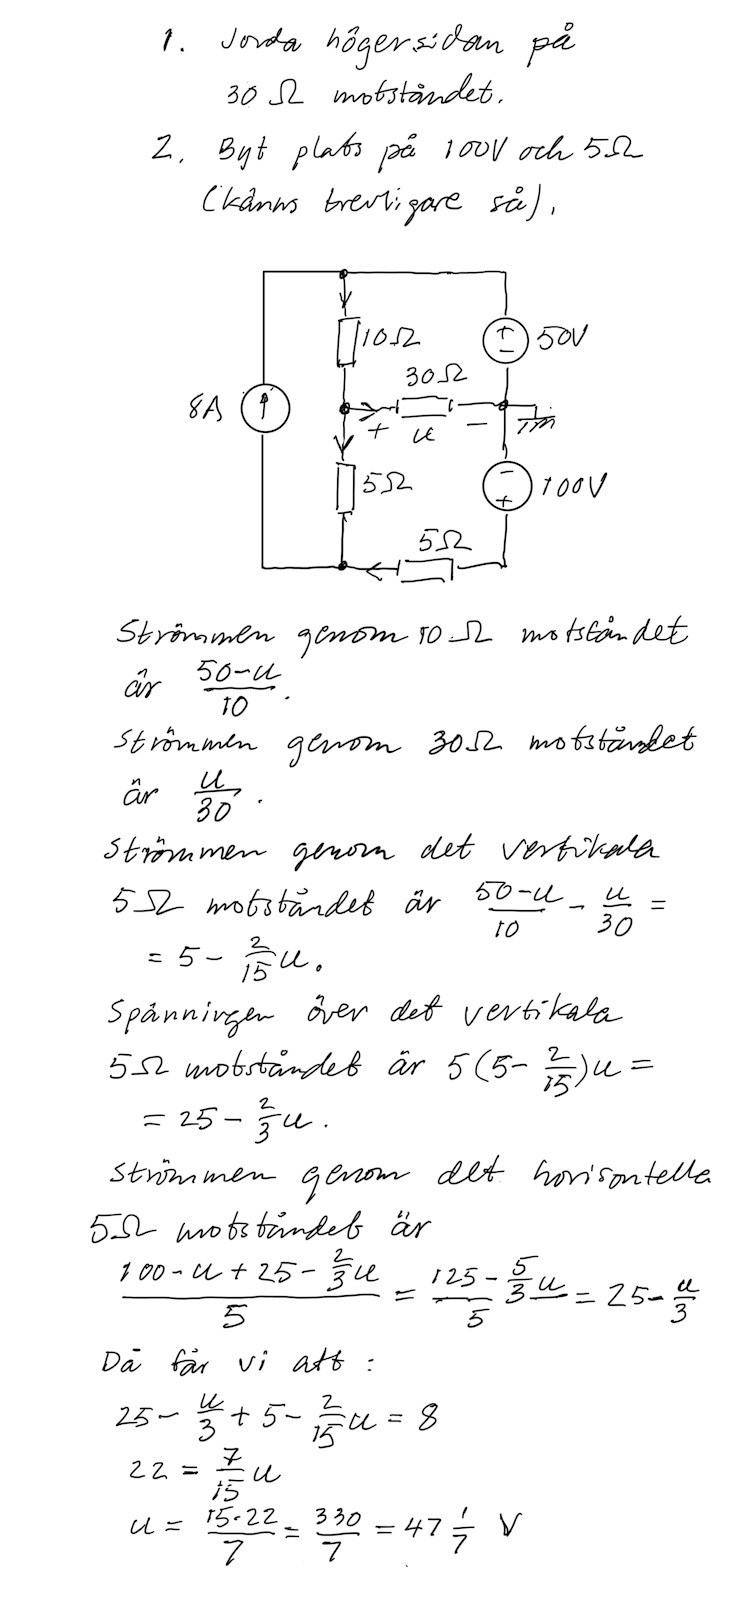 1. Jorda högersidan på
30 Ω motståndet.
2. Byt plats på 100V och 5Ω
(känns trevligare så).
10Ω
50V
30Ω
8A
+ u -
5Ω
100V
5Ω
Strömmen genom 10 Ω motståndet
är (50-u)/10.
Strömmen genom 30Ω motståndet
är u/30.
Strömmen genom det vertikala
5Ω motståndet är (50-u)/10 - u/30 =
= 5 - 2/15 u.
Spänningen över det vertikala
5Ω motståndet är 5(5 - 2/15)u =
= 25 - 2/3 u.
Strömmen genom det horisontella
5Ω motståndet är
(100 - u + 25 - 2/3 u)/5 = (125 - 5/3 u)/5 = 25 - u/3
Då får vi att :
25 - u/3 + 5 - 2/15 u = 8
22 = 7/15 u
u = 15·22/7 = 330/7 = 47 1/7 V